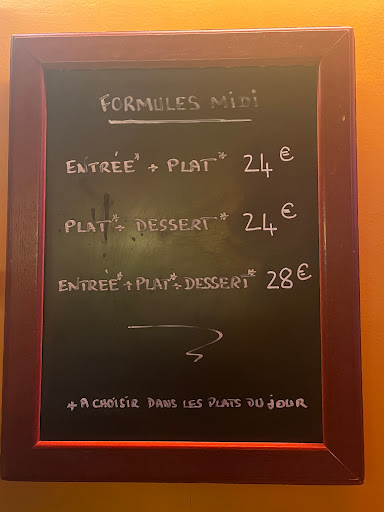 FORMULES MIDI
ENTRÉE* + PLAT* 24€
PLAT* + DESSERT* 24€
ENTRÉE* + PLAT* + DESSERT* 28€
* A CHOISIR DANS LES PLATS DU JOUR